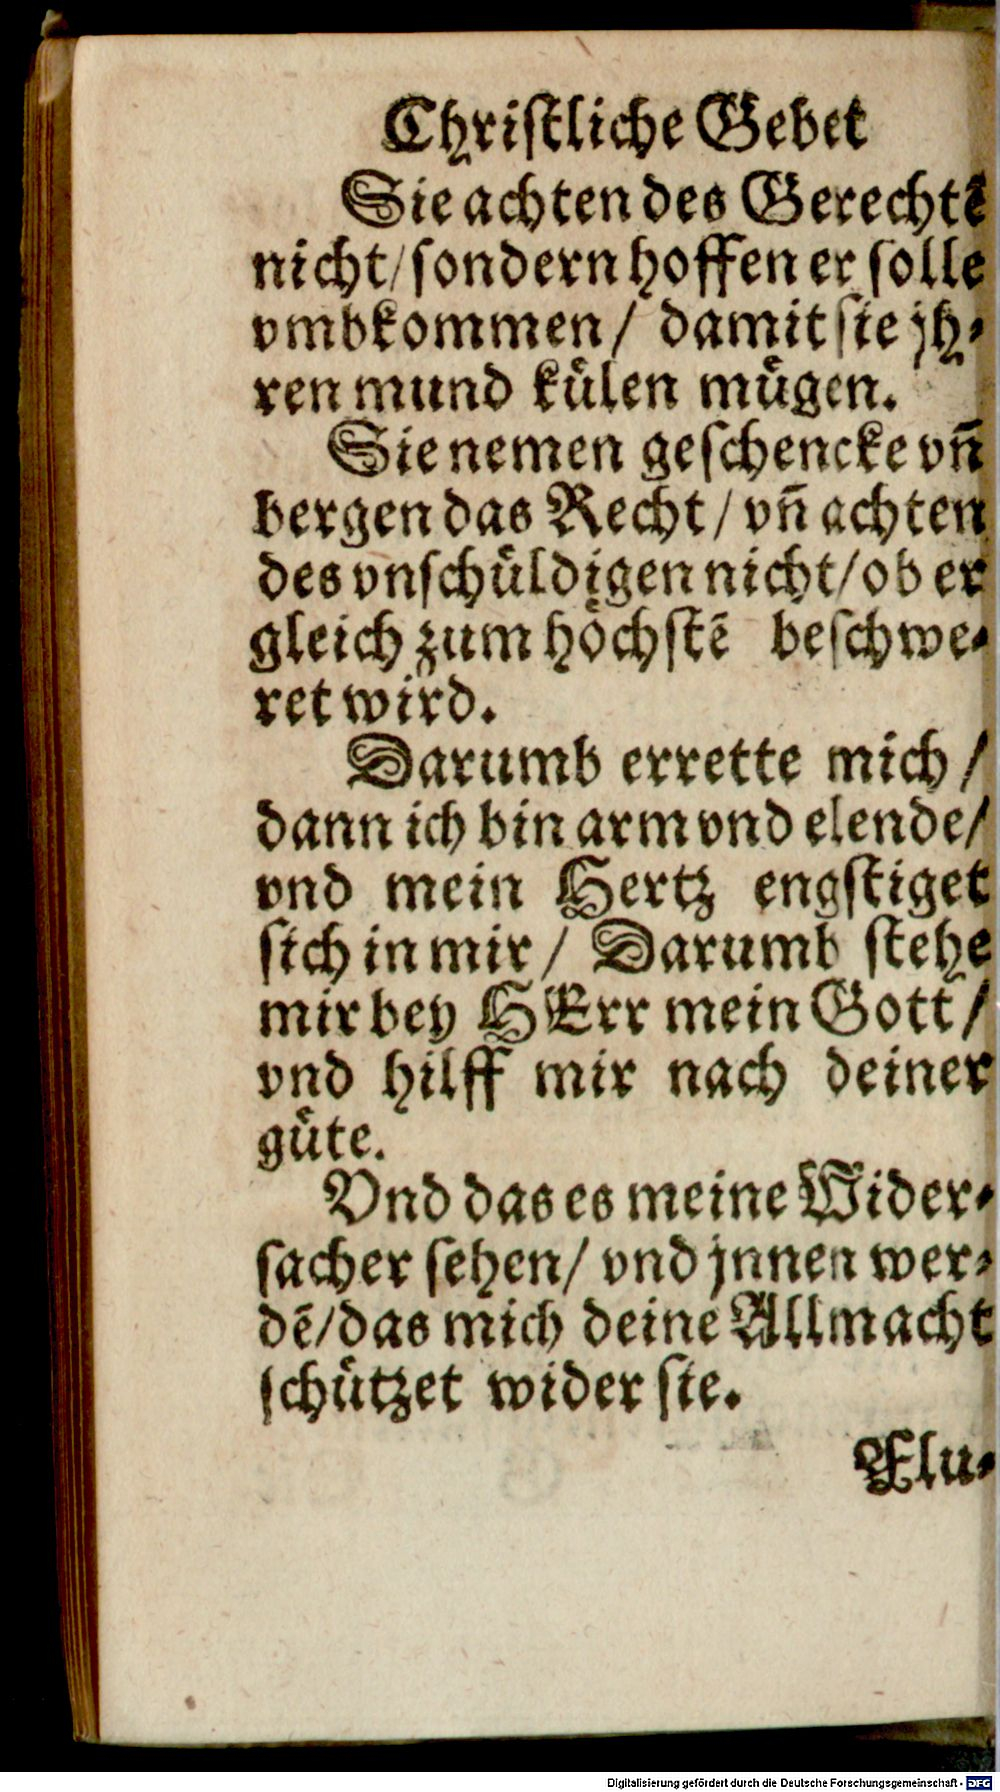 Christliche Gebet
Sie achten des Gerechtẽ
nicht/ sondern hoffen er solle
vmbkommen/ damit sie jh-
ren mund kuͤlen muͤgen.
Sie nemen geschencke vñ
bergen das Recht/ vñ achten
des vnschuͤldigen nicht/ ob er
gleich zum hoͤchstẽ beschwe-
ret wird.
Darumb errette mich/
dann ich bin arm vnd elende/
vnd mein Hertz engstiget
sich in mir/ Darumb stehe
mir bey HErr mein Gott/
vnd hilff mir nach deiner
guͤte.
Vnd das es meine Wider-
sacher sehen/ vnd jnnen wer-
dẽ/ das mich deine Allmacht
schuͤtzet wider sie.
Flu-
Digitalisierung gefördert durch die Deutsche Forschungsgemeinschaft - DFG